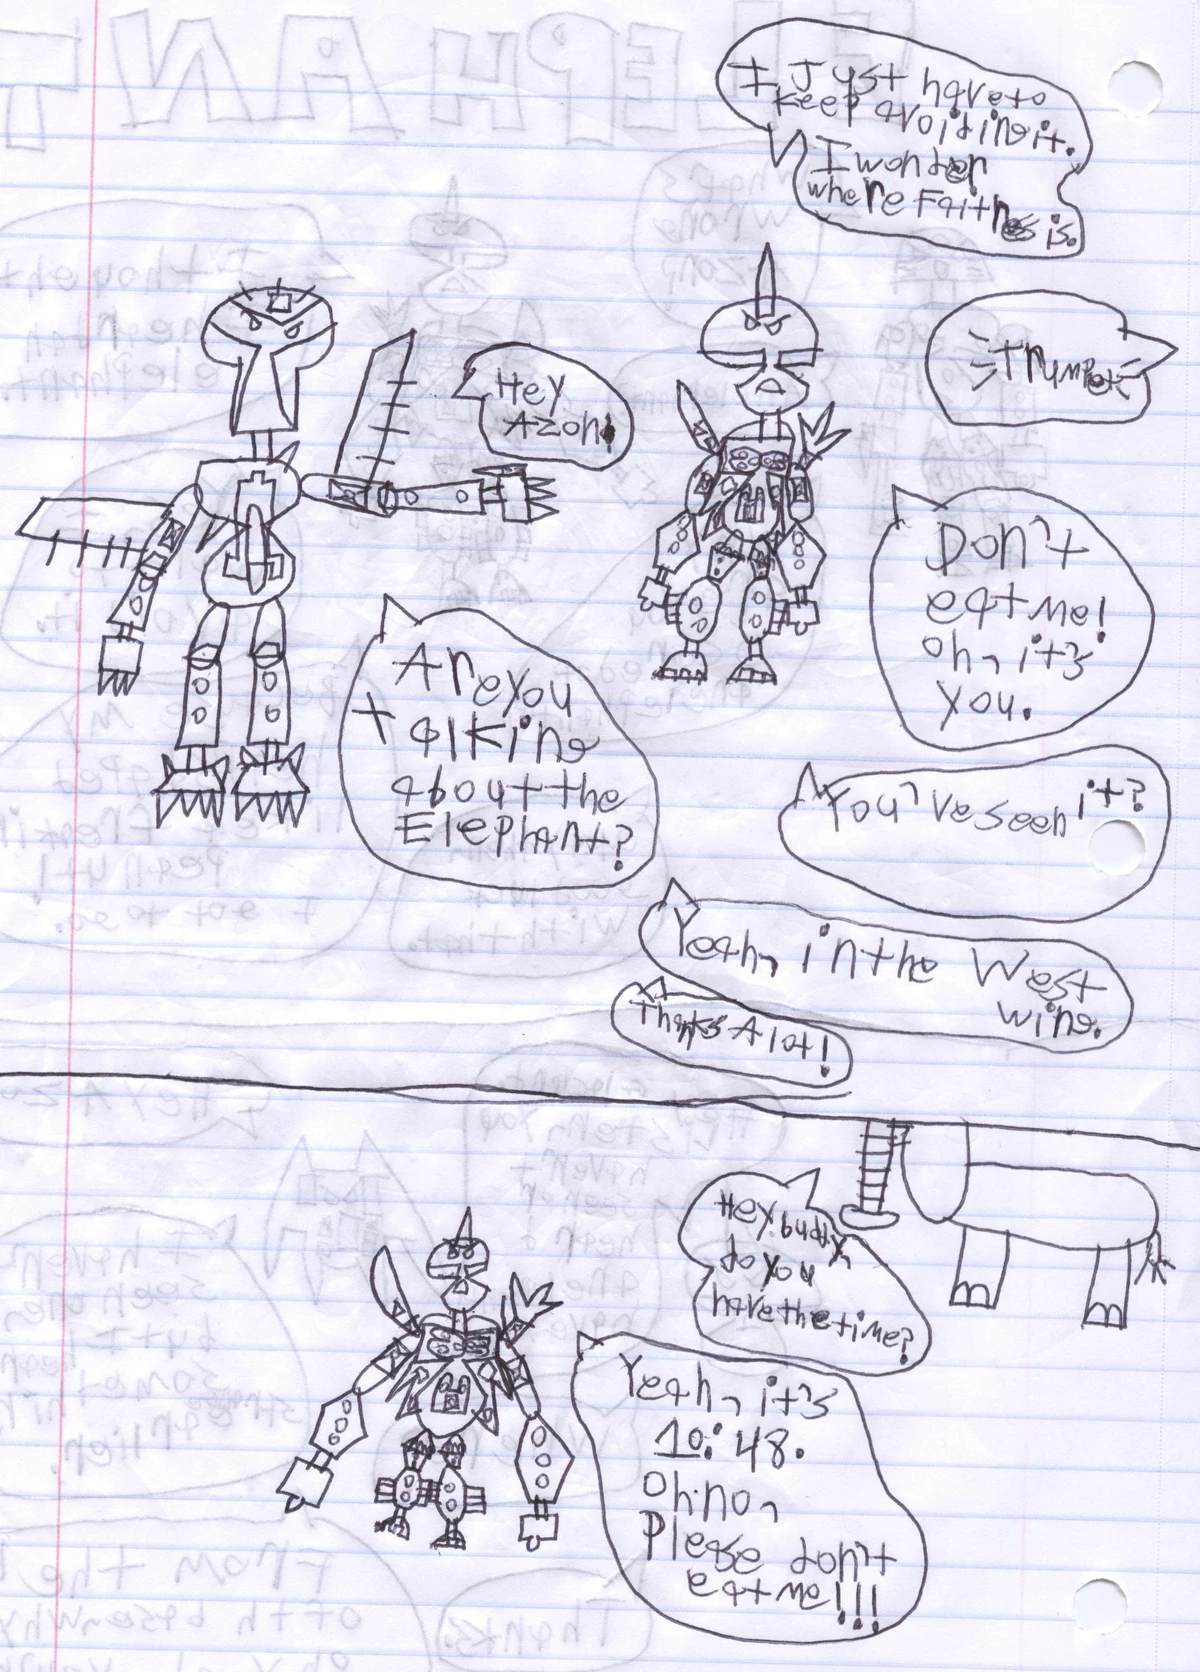 I Just have to
keep avoiding it.
I wonder
where Faithness is.
Trumpet
Hey
Azon!
Don't
eat me!
Oh, it's
you.
Are you
talking
about the
Elephant?
You've seen it?
Yeah, in the West
wing.
Thanks A lot!
Hey buddy,
do you
have the time?
Yeah, it's
10:48.
Oh no,
Please don't
eat me!!!